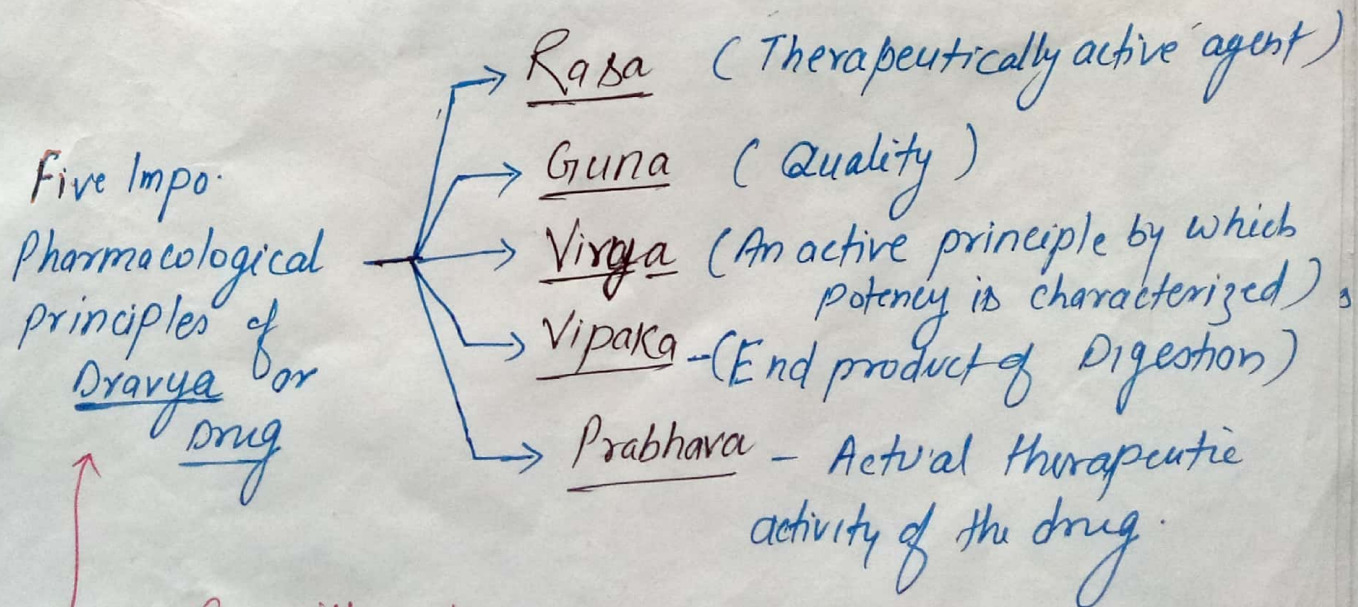 Five Impo.
Pharmacological
principles of
Dravya or
Drug
Rasa (Therapeutically active agent)
Guna (Quality)
Virya (An active principle by which
potency is characterized),
Vipaka - (End product of Digestion)
Prabhava - Actual therapeutic
activity of the drug.